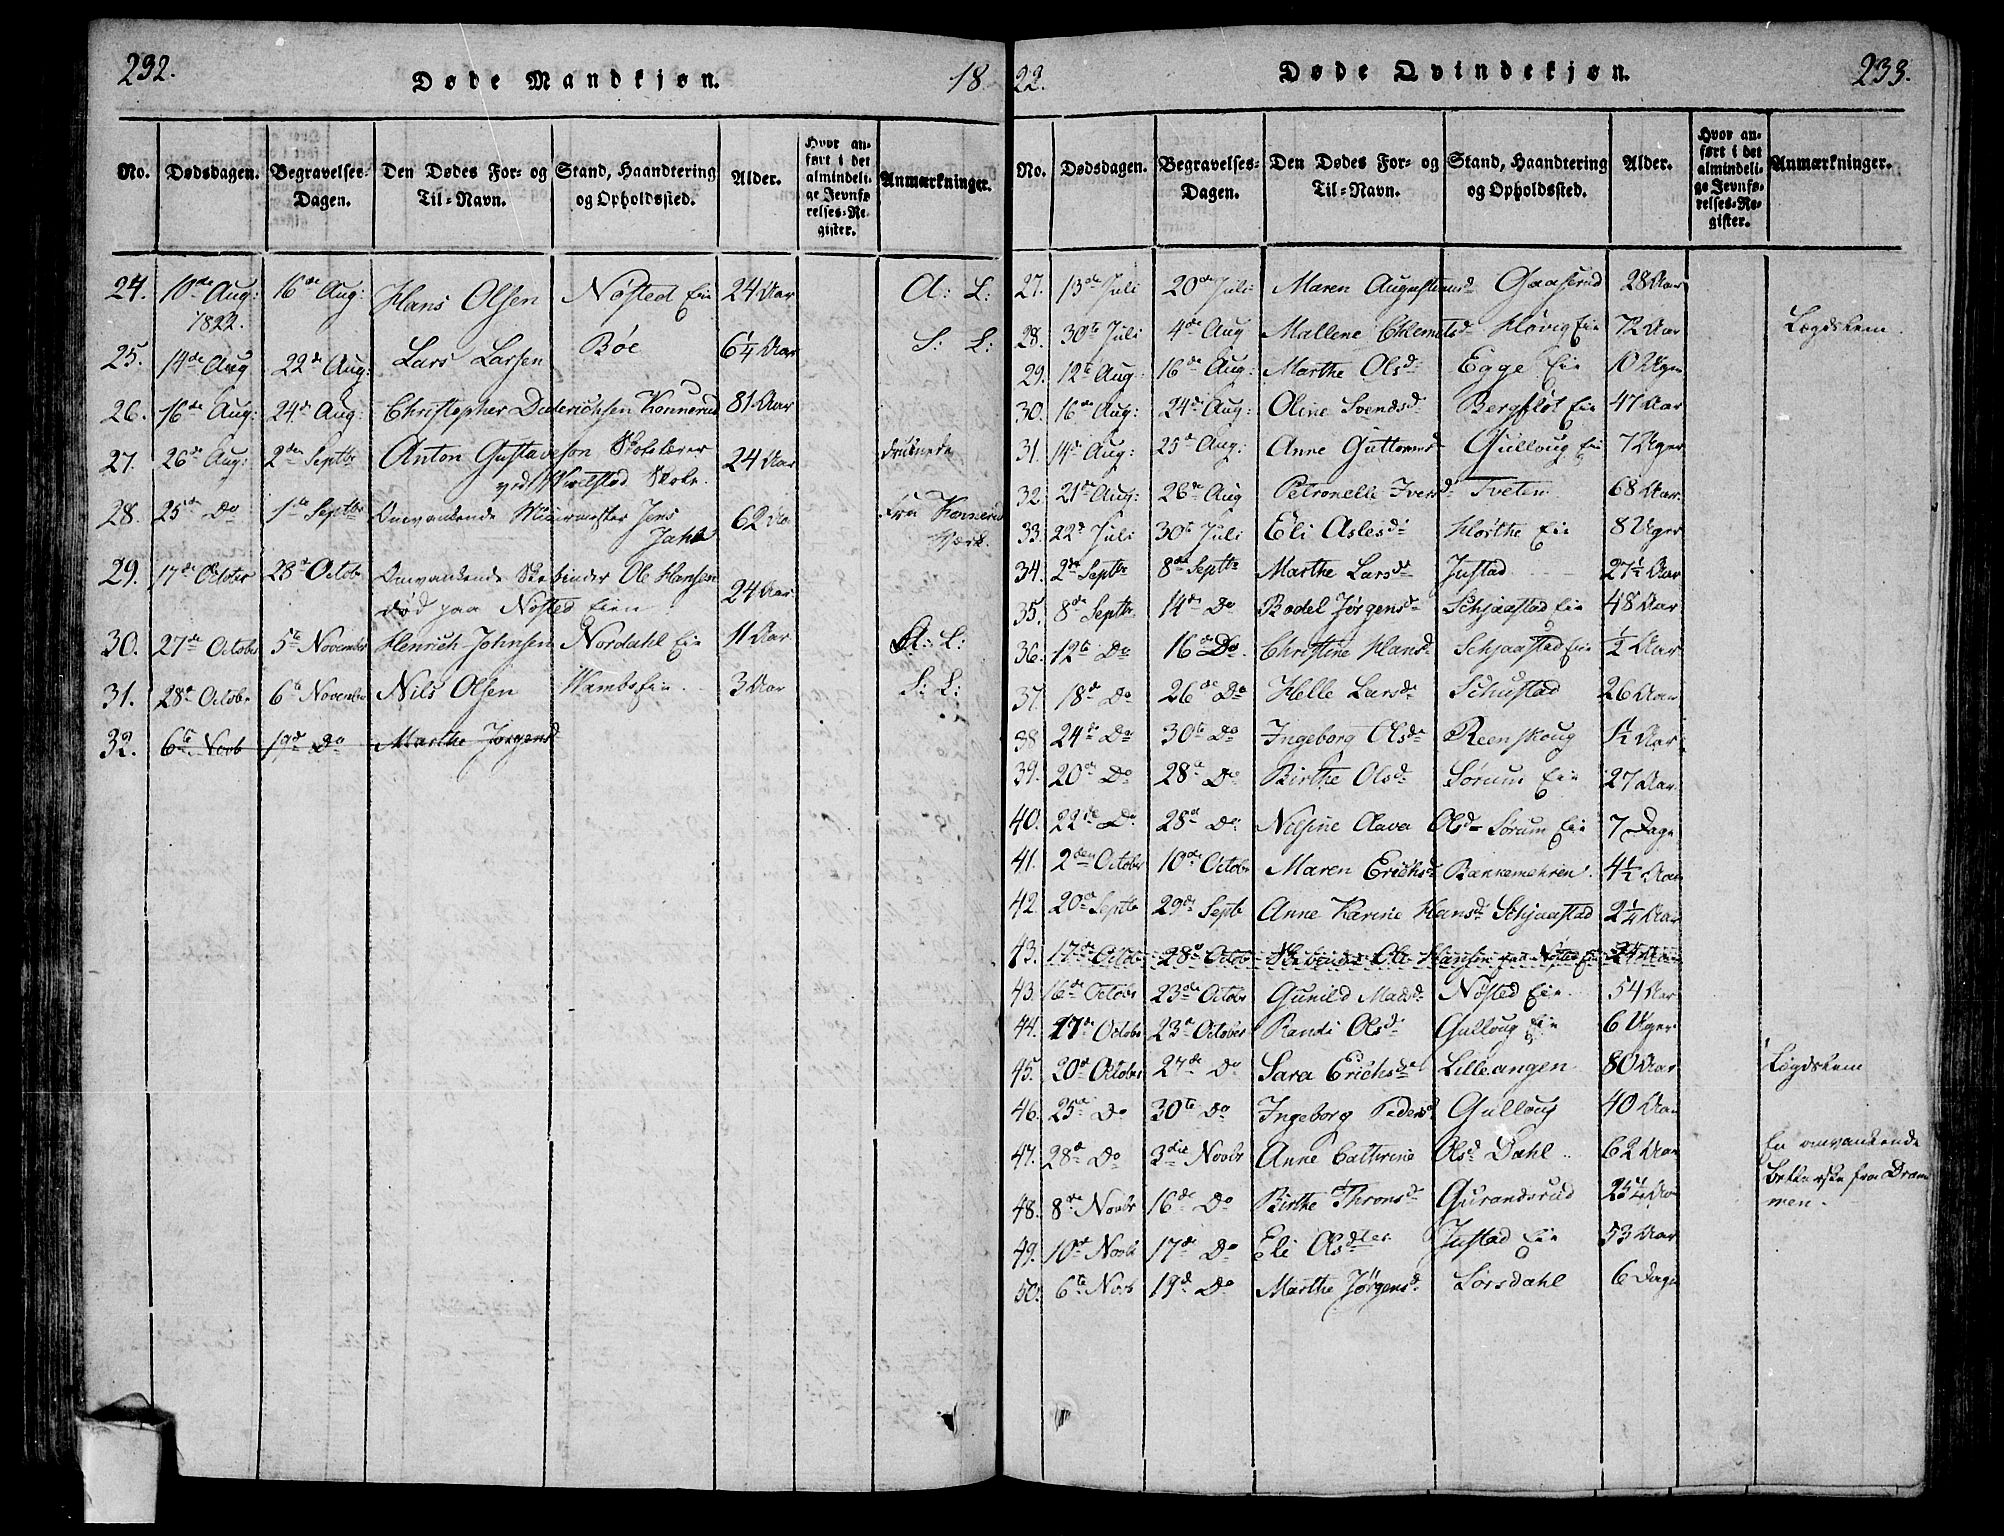 292.
Døde Mandkjøn.
18
No. Dødsdagen. Begravelses-Dagen. Den Dødes For- og Til-Navn. Stand, Haandtering og Opholdssted. Alder. Hvor anført i det almindelige Jevnførelses-Register. Anmærkninger.
24. 10de Aug: 1822. 16de Aug: Hans Olsen Nøsted Eie 24 Aar A: L:
25. 14de Aug 22de Aug: Lars Larsen Böe 6 1/4 Aar S: L:
26. 16de Aug: 24de Aug: Christopher Diderichsen Konnerud 81 Aar
27. 26de Aug: 2den Septbr Anton Gustavson Skolelærer 24 Aar
ved Skole.
28. 25de Do 1ste Septbr Omvankende Jens 62 Aar Fra Konnerud
Værk.
29. 17de October 28de Octob Omvankende Ole Hansen
død paa Nøsted Eien 24 Aar
30. 27de October 5te November Henrich Johnsen Nordahl Eie 11 Aar A: L:
31. 28de Octobr 6te November Nils Olsen Wambs Eie 3 Aar S: L:
32. 6te Novb 19de Do Marthe Jørgensd
22.
Døde Qvindekjøn.
233.
No. Dødsdagen. Begravelses-Dagen. Den Dødes For- og Til-Navn. Stand, Haandtering og Opholdssted. Alder. Hvor anført i det almindelige Jevnførelses-Register. Anmærkninger.
27. 13de Juli 20de Juli Maren Gaaserud 28 Aar
28. 30te Juli 4de Aug Mallene Clemetsd Høvig Eie 72 Aar Lægdslem
29. 12te Aug: 16de Aug: Marthe Olsd Egge Eie 10 Uger
30. 16de Aug: 24de Aug: Oline Svendsd Bergfløt Eie 47 Aar
31. 14de Aug: 25de Aug: Anne Guttormsd Gulloug Eie 7 Uger
32. 21de Aug: 26de Aug Petronelle Iversd Tveten 68 Aar
33. 22de Juli 30te Juli Eli Aslesd Horthe Eie 8 Uger
34. 2den Septbr 8de Septbr Marthe Larsd Justad 27 1/2 Aar
35. 8de Septbr 14de Do Bodel Jørgensd Schjaastad Eie 48 Aar
36. 12te Do 16de Do. Christine Hansd Schjaastad Eie 1/2 Aar
37. 18de Do 26de Do Helle Larsd Schustad 26 Aar
38 24de Do 30te Do Ingeborg Olsd Reenskoug 1 1/2 Aar
39. 20de Do 28de Do Birthe Olsd Sørum Eie 27 Aar
40. 22de Do 28de Do Nilsine Olava Olsd Sørum Eie 7 Dage
41. 2den Octobr 10de Octobr Maren Erichsd Bakkemehren 4 1/2 Aar
42 20de Septbr 29de Septb Anne Karine Hansd Schjaastad 2 1/4 Aar
43. 17de Octob 28de Octob Ole Hansen paa Nøsted Eie 24 Aar
43. 16de Octobr 23de Octobr Gunild Madsd Nøsted Eie 54 Aar
44. 17de Octobr 23de October Randi Olsd Gulloug Eie 6 Uger
45. 20de Octobr 27de Do Sara Erichsd Lilleangen 80 Aar Lægdslem
46. 25de Do 30te Do Ingeborg Pedersd Gulloug 40 Aar
47. 28de Do 3die Novbr Anne Cathrine Olsd Dahl 62 Aar En omvankende
Betlerske fra Drammen.
48. 8de Novbr 16de Do Birthe Thronsd Gurandsrud 25 1/4 Aar
49. 10de Novb 17de Do Eli Olsdter Justad Eie 53 Aar
50. 6te Novb 19de Do Marthe Jørgensd Sørsdahl 6 Dage